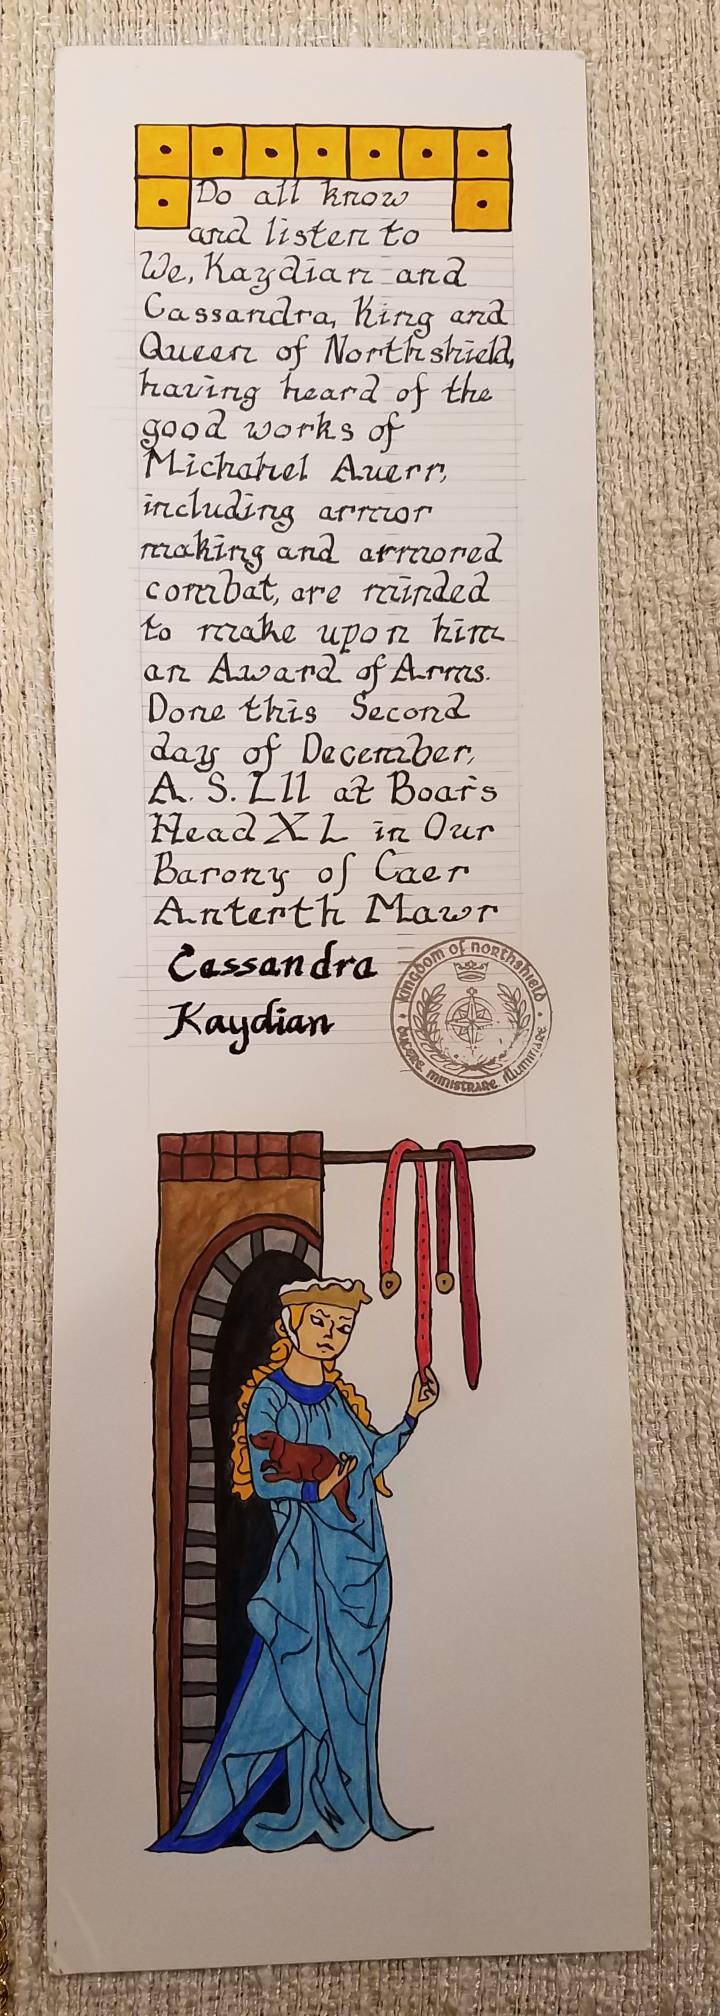 Do all know
and listen to
We, Kaydian and
Cassandra, King and
Queen of Northshield,
having heard of the
good works of
Michahel Averr,
including armor
making and armored
combat, are minded
to make upon him
an Award of Arms.
Done this Second
day of December,
A. S. LII at Boar's
Head XL in Our
Barony of Caer
Anterth Mawr
Cassandra
Kaydian
Kingdom of Northshield
Ducere Ministrare Illuminare